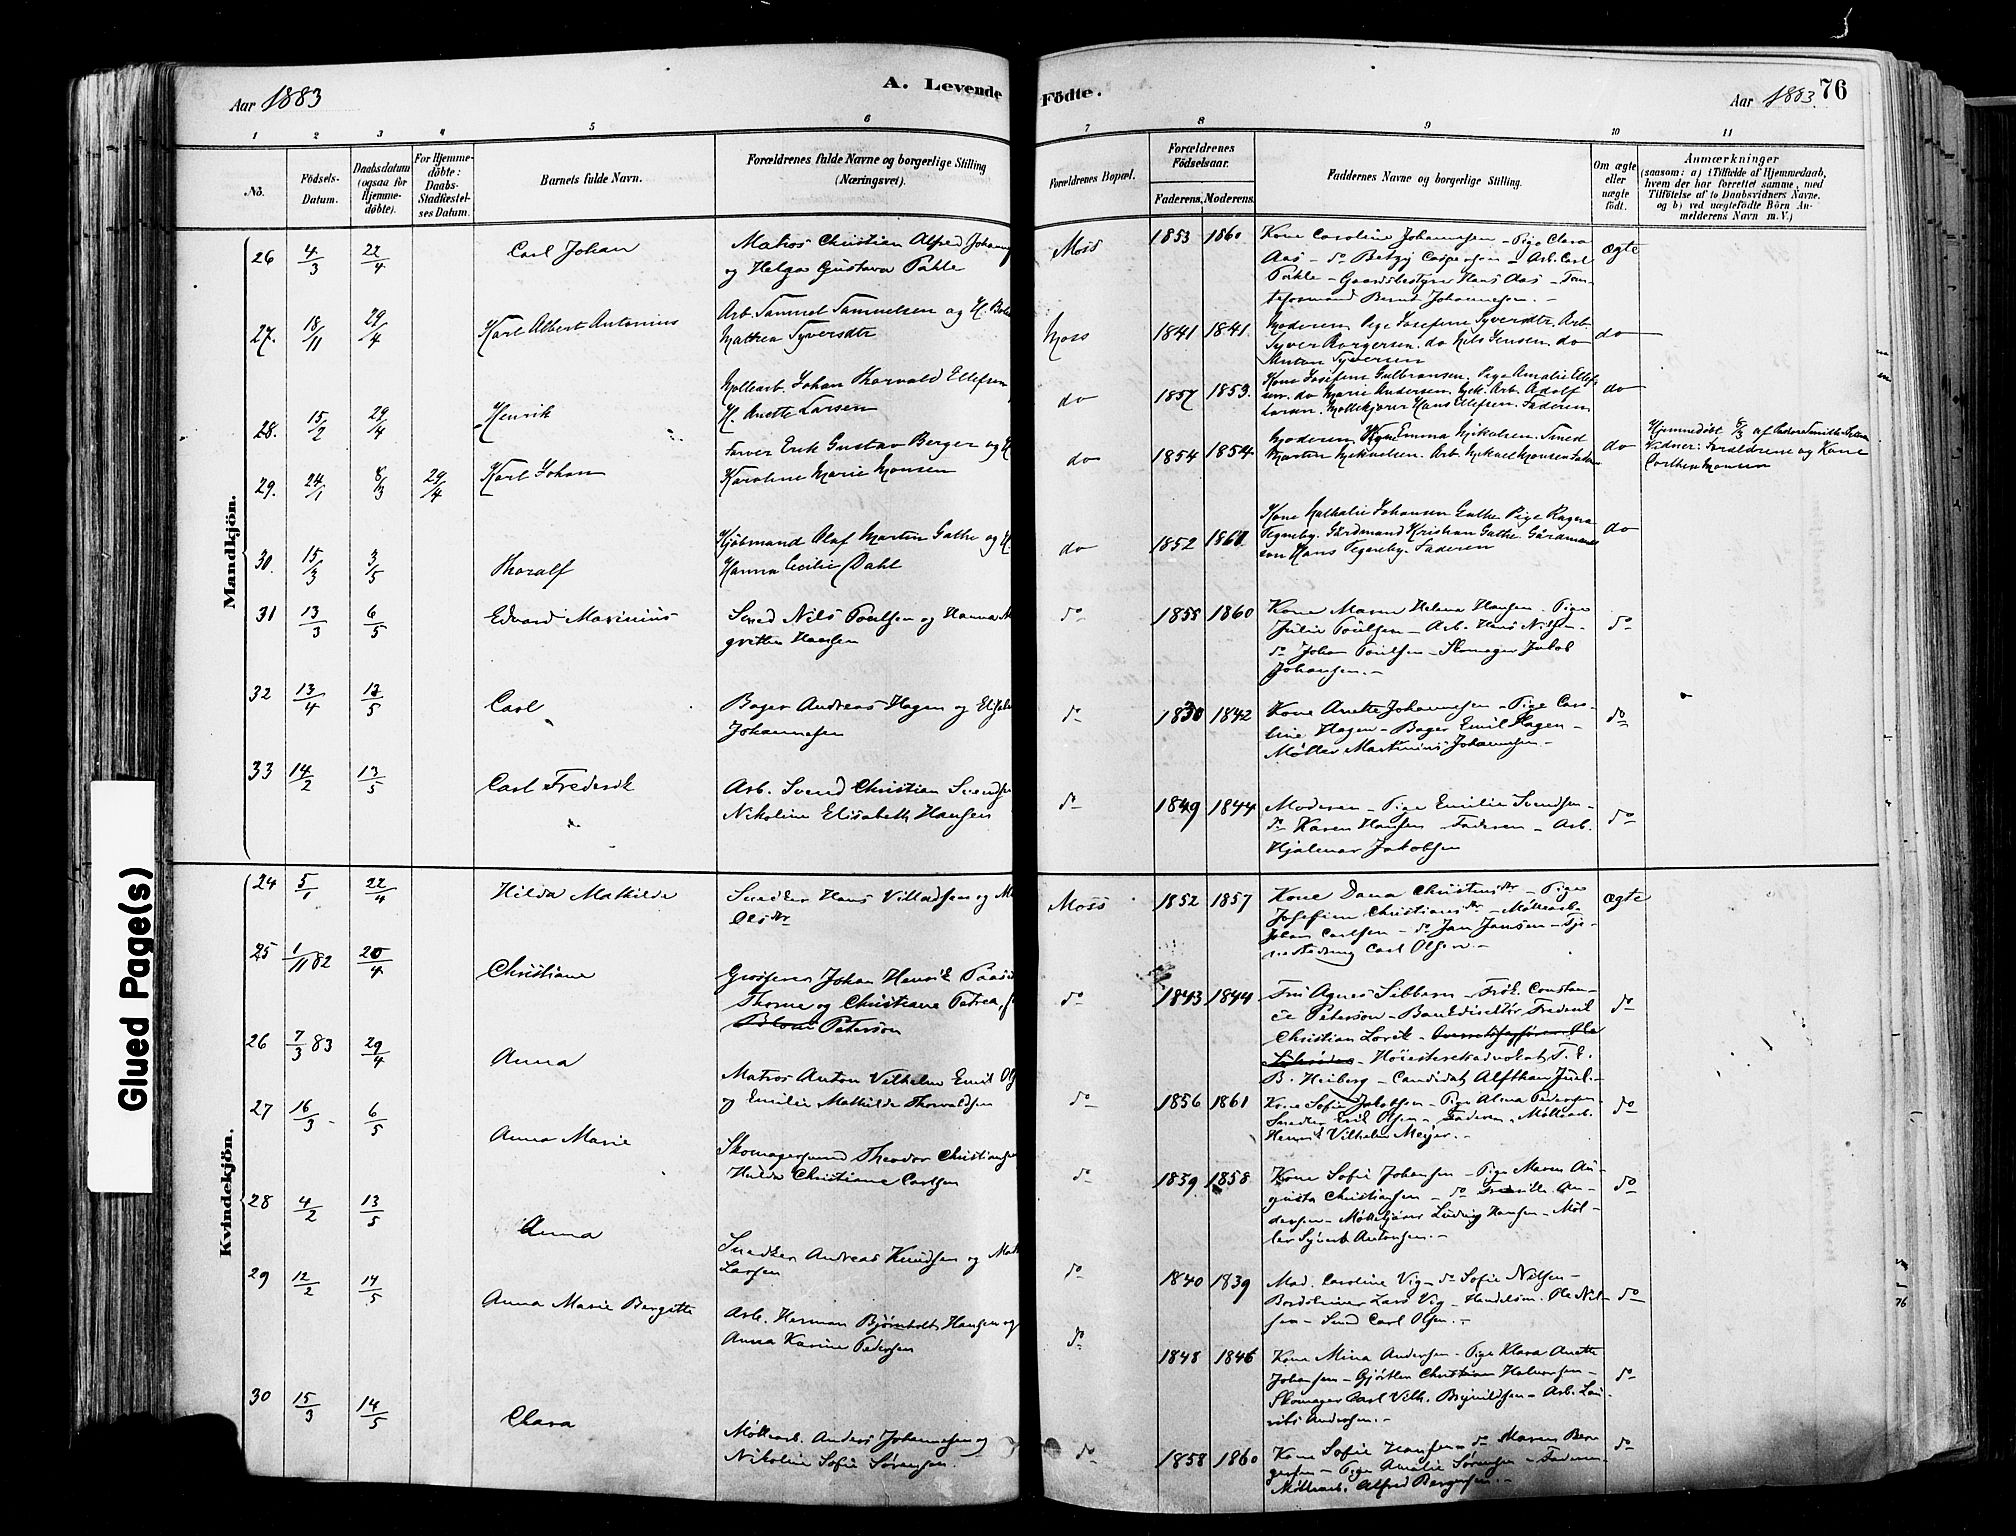 Aar 1883
A. Levende Födte.
Aar 1883.
76
1 2 3 4 5 6 7 8 9 10 11
No.
Födsels-Datum.
Daabsdatum (ogsaa for Hjemmedöbte).
For Hjemmedöbte: Daabs-Stadfæstelses Datum.
Barnets fulde Navn.
Forældrenes fulde Navne og borgerlige Stilling (Næringsvei).
Forældrenes Bopæl.
Forældrenes Födselsaar.
Faderens. Moderens.
Faddernes Navne og borgerlige Stilling.
Om ægte eller uægte födt.
Anmærkninger
(saasom: a) i Tilfælde af Hjemmedaab, hvem der har forrettet samme, med Tilföielse af to Daabsvidners Navne, og b) ved uægtefödte Börn Anmelderens Navn m. V.)
Mandkjön.
26 4/3 22/4 Carl Johan
Matros Christian Alfred
og Helga Gustava Pahle
Moss 1853 1860
Kone Caroline Johannesen - Pige Clara
Aas - do Betzy Caspersen - Arb. Carl
Pahle - Gaardsbestyrer Hans Aas - Tom-
teformand Bernt Johannesen. -
ægte
27. 18/11 29/4 Karl Albert Antonius
Arb. Samuel Samuelsen og H.
Mathea Syversdtr
Moss 1841 1841.
Moderen, Pige Josefine Syversdtr. Arb.
Syver Borgersen. do Nils Jensen. do
Anton Syversen
do
28. 15/2 29/4 Henrik
Møllearb. Johan Thorvald Ellefsen
H. Anette Larsen
do 1857 1859.
Kone Josefine Gulbransen, Pige Amalie Ellef-
sen. do Marie Andersen, Arb. Adolf
Larsen. Møllekjører Hans Ellefsen. Faderen
do
29. 24/1 8/3 29/4 Karl Johan
Farver Erik Gustav Berger og H
Karoline Marie Monsen
do 1854 1854.
Moderen, Kone Emma Mikalsen. Smed
Martin Mikaelsen. Arb. Mikael Monsen
do
Hjemmedøbt 8/3 af
Vidner: Forældrene og Kone
Monsen
30. 15/3 3/5 Thoralf
Kjøbmand Olaf Martin Gathe og H.
Hanna Cecilie Dahl
do 1852 1860.
Kone Mathilie Johansen Gathe Pige Ragna
Tegneby. Gårdmand Kristian Gathe. Gårdmands
søn Hans Tegneby. Faderen
do
31 13/3 6/5 Edvard Marinius
Smed Nils Poulsen og Hanna
grethe Hansen
do 1855 1860
Kone Maren Helena Hansen - Pige
Julie Poulsen - Arb. Hans Nilsen -
do Johan Poulsen - Skomager Jakob
Johansen. -
do
32 13/4 13/5 Carl
Bager Andreas Hagen og
Johannesen
do 1830 1842
Kone Anette Johannesen - Pige Caro-
line Hagen - Bager Emil Hagen -
Møller Martinius Johannesen. -
do
33 14/2 13/5 Carl Frederik
Arb. Svend Christian
Nikoline Elisabeth Hansen
do 1849 1844
Moderen - Pige Emilie Svendsen -
do Karen Hansen - Faderen - Arb.
Hjalmar Jakobsen
do
Kvindekjön.
24 5/1 22/4 Hilda Mathilde
Snedker Hans Villadsen og
Olsdtr
Moss 1852 1857
Kone Dana Christensdtr - Pige
Josefine Christiansdtr - Møllearb.
Johan Carlsen - do Jan Jansen - Tje-
nestedreng Carl Olsen. -
ægte
25 1/11 82 20/4 Christiane
Grosserer Johan Henrik
Thorne og Christiane Petrea
Peterson
do 1843 1844
Fru Agnes Sibbern - Frøk. Constan-
ce Peterson - Bankdirektør Frederik
Christian Lorck -
Høiesteretsadvokat
B. Heiberg - Candidat Alfthan Juel. -
do
26 7/3 83 29/4 Anna
Matros Anton Vilhelm Emil
og Emilie Mathilde Thorvaldsen
do 1856 1861
Kone Sofie Jakobsen - Pige Alma Pedersen -
Snedker Erik Olsen - Faderen - Møllearb.
Henrik Vilhelm Meyer. -
do
27 16/3 6/5 Anna Marie
Skomagersvend Theodor Christiansen
Hilda Christiane Carlsen
do 1839 1858
Kone Sofie Johansen - Pige Maren Au-
gusta Christiansen - do An-
dersen - Møllekjører Ludvig Hansen - Møl-
ler Syvert Antonsen. -
do
28 4/2 13/5 Anna
Snedker Andreas Knudsen og
Larsen
do 1840 1839
Mad. Caroline Vig - do Sofie Nilsen -
Lars Vig - Handelsm. Ole Nil-
sen - Smed Carl Olsen. -
do
29 12/2 14/5 Anna Marie Bergitte
Arb. Herman Bjørnholt Hansen og
Anna Karine Pedersen
do 1848 1846
Kone Mina Andersen - Pige Klara Anette
Johansen - Gjørtler Christian Halvorsen -
Skomager Carl Vilh. Brynildsen - Arb. Lau-
rits Andersen. -
do
30 15/3 14/5 Clara
Møllearb. Anders Johannesen og
Nikoline Sofie Sørensen.
do 1858 1860
Kone Sofie Hansen - do Maren Ber-
gersen - Pige Amalie Sørensen - Faderen
Møllearb. Alfred Bergersen. -
do
Glued Page(s)
76